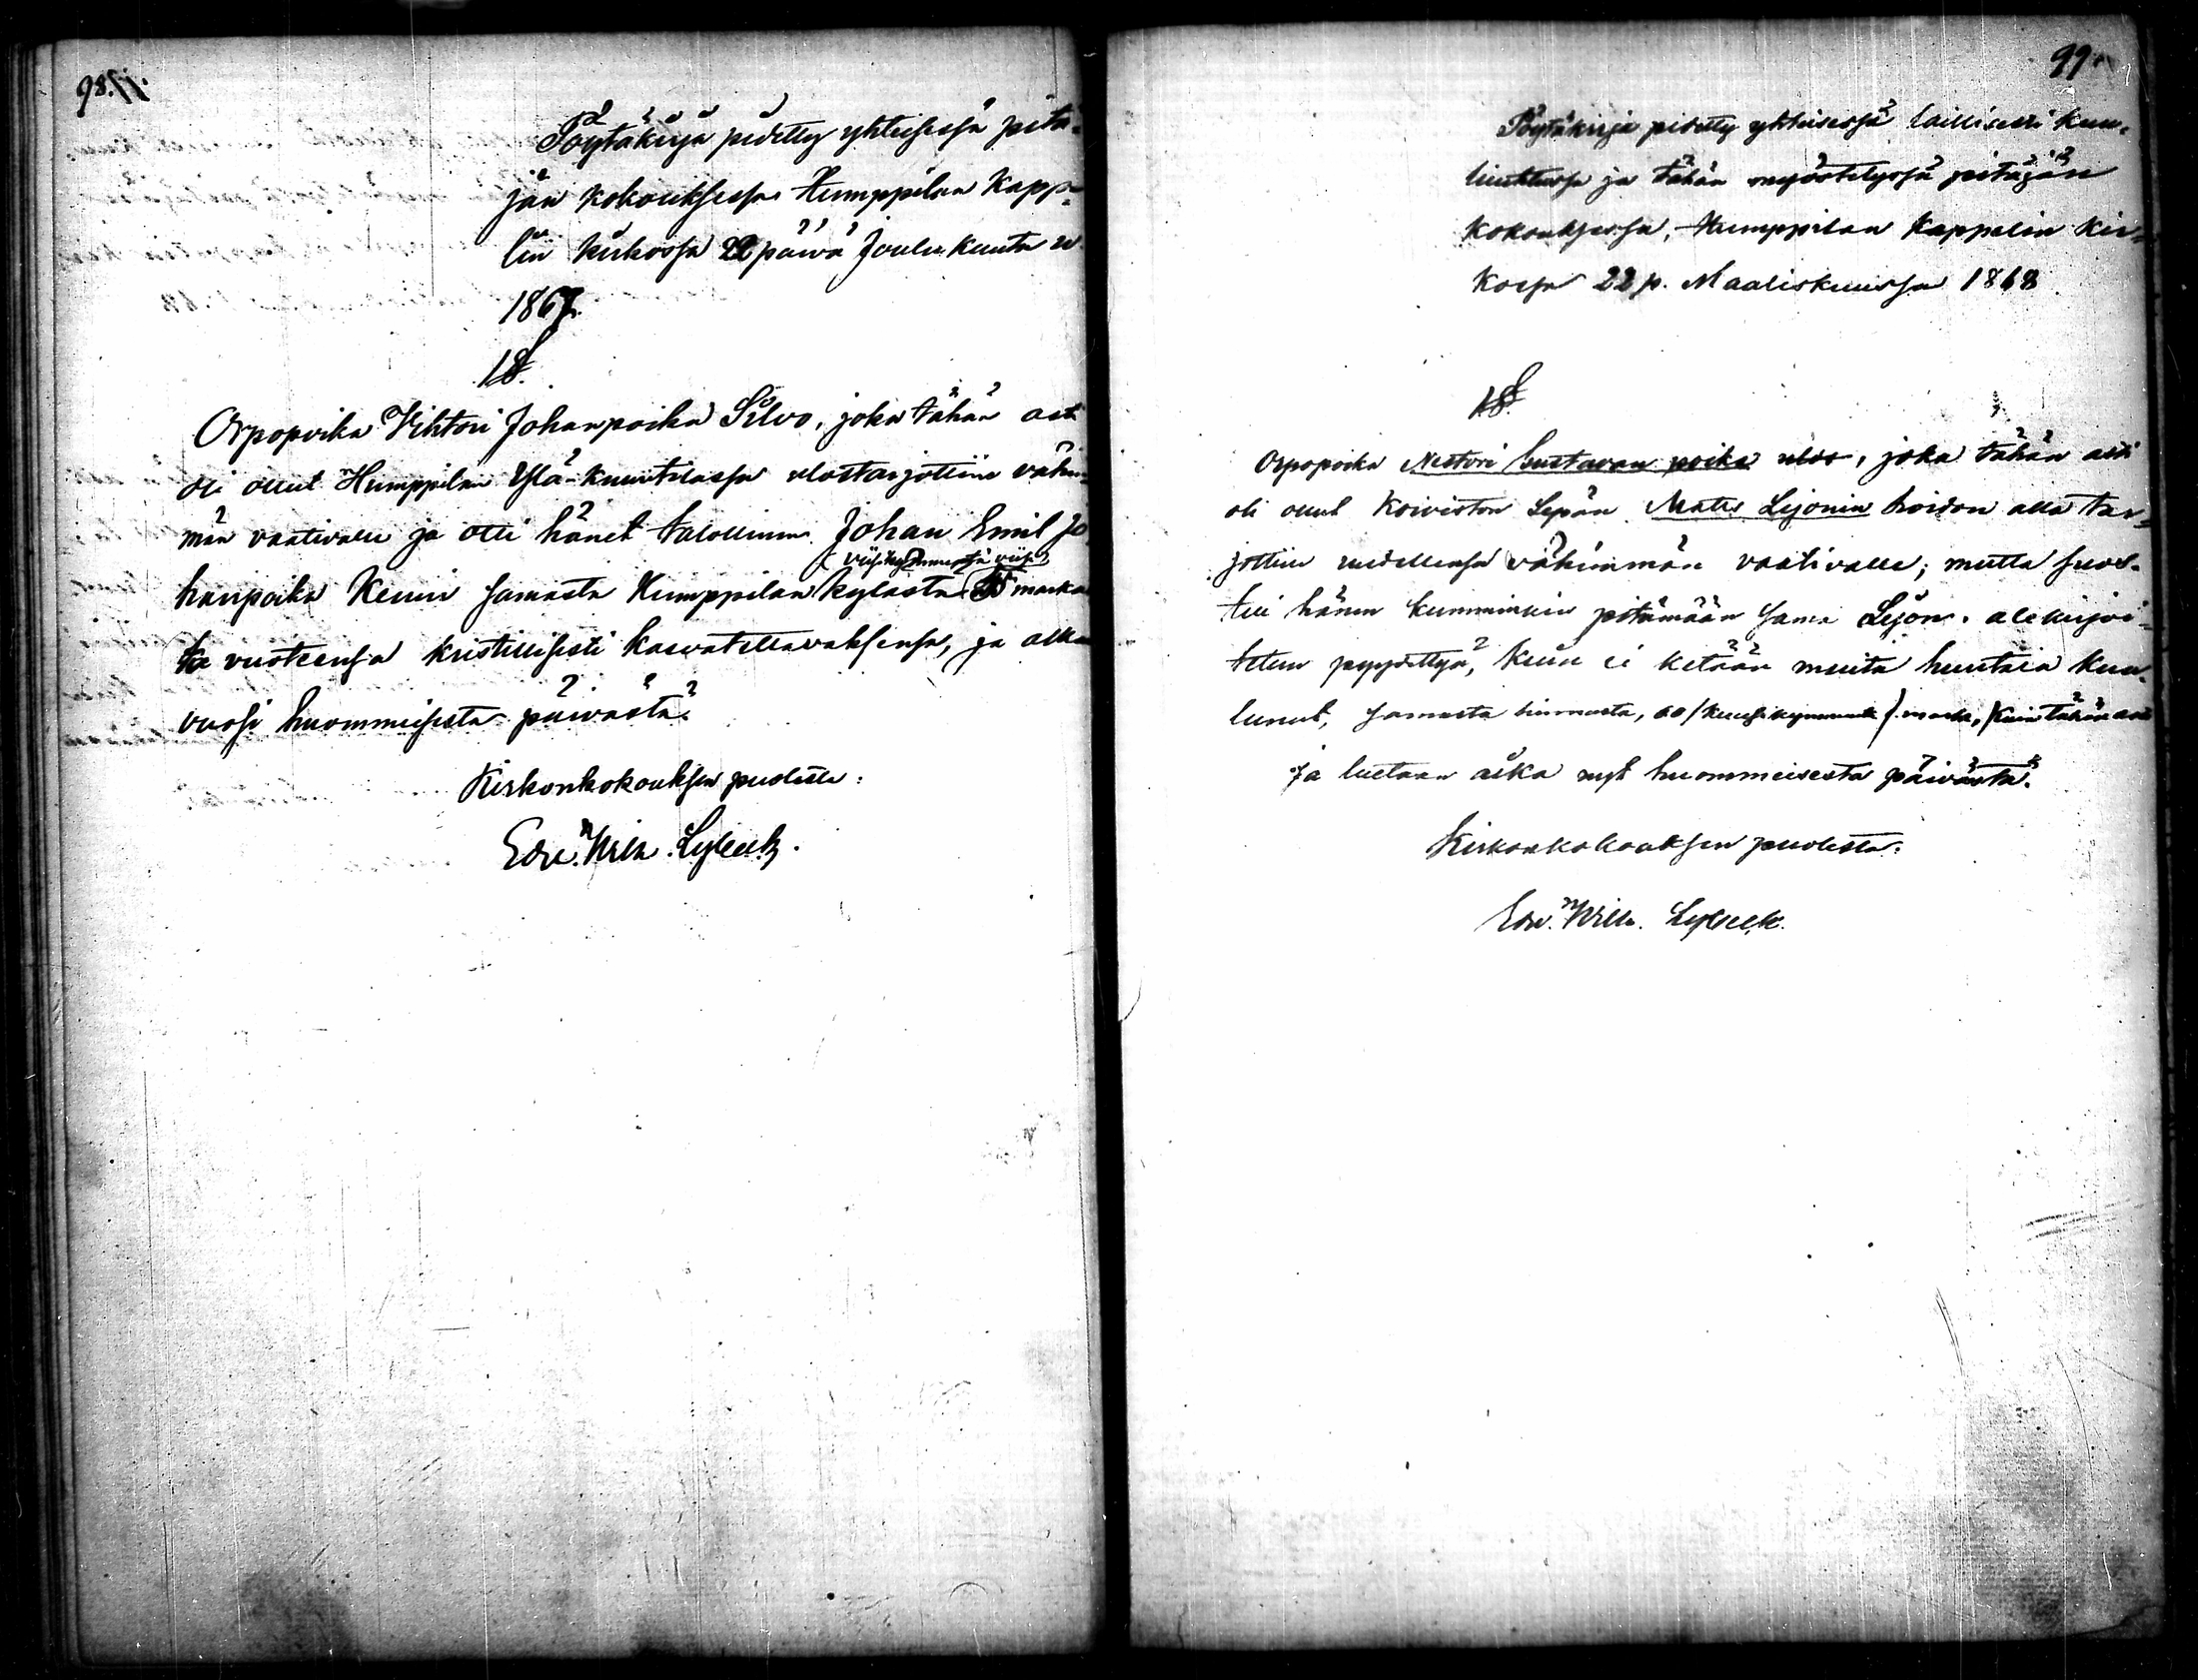 98.
Pöytäkirja pidetty yhteisessä pitä-
jän kokouksessa Humppilan Kapp-
lin kirkossa 22 päivä Joulukuuta v.
1867.
1 §.
Orpopoika Vihtori Johanpoika Silvo, joka tähän asti
oli ollut Humppilan Ylä-Kuurtilassa ulostarjottiin vähim-
män vaativalle ja otti hänet talollinen Johan Emil Jo-
(viisikymmentä viisi)
hanpoika Keuri samasta Humppilan kylästä 55 markka-
ta vuoteensa kristillisesti kaswatettavaksensa, ja alkaa
vuosi huommisesta päiwästä.
Kirkonkokouksen puolesta:
Edv. Wilh. Lybeck.
99.
Pöytäkirja pidetty yhteisessä laillisesti kuu-
lutetussa ja tähän myöstetyssä pitäjän
kokouksessa, Humppilan Kappelin Kir-
kossa 22 p. Maaliskuussa 1868
1 §.
Orpopoika Nestori Gustavan poika, joka tähän asti
oli ollut Koiviston Sepän Matts Lejonin hoidon alla tar-
jottiin uudellensa vähimmän vaativalle; mutta suos-
tui hänen kumminkin pitämään sama Lejon, allekirjoi-
tetun pyydettyä, kuin ei ketään muita huutaia kuu-
lunut, samasta hinnasta, 60 /kuusikymmentä/ markk, kuin tähän asti
ja luetaan aika nyt huommeisesta päivästä.
Kirkonkokouksen puolesta:
Edv. Wilh. Lybeck.